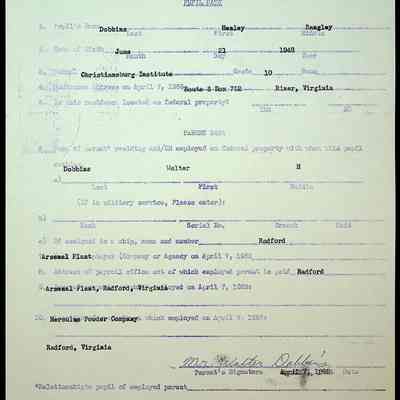 PUPIL DATA
1. Pupil's Name Dobbins Henley Beagley
Last First Middle
2. Date of Birth June 21 1948
Month Day Year
3. School Christiansburg Institute Grade 10 Room
4. Residence Address on April 7, 1965 Route 2 Box 712 Riner, Virginia
5. Is this residence located on federal property?
YES NO
PARENT DATA
6. Name of parent* residing and/OR employed on federal property with whom this pupil
resides:
a) Dobbins Walter H
Last First Middle
(If in military service, Please enter):
b)
Rank Serial No. Branch Unit
c) If assigned to a ship, name and number Radford
7. Arsenal Plant employed (Company or Agency on April 7, 1965
8. Address of payroll office out of which employed parent is paid Radford
9. Arsenal Plant, Radford, Virginia employed on April 7, 1965:
10. Hercules Powder Company on which employed on April 7, 1965:
Radford, Virginia
Mr. Walter Dobbins
Parent's Signature April 7, 1965 Date
*Relationship to pupil of employed parent